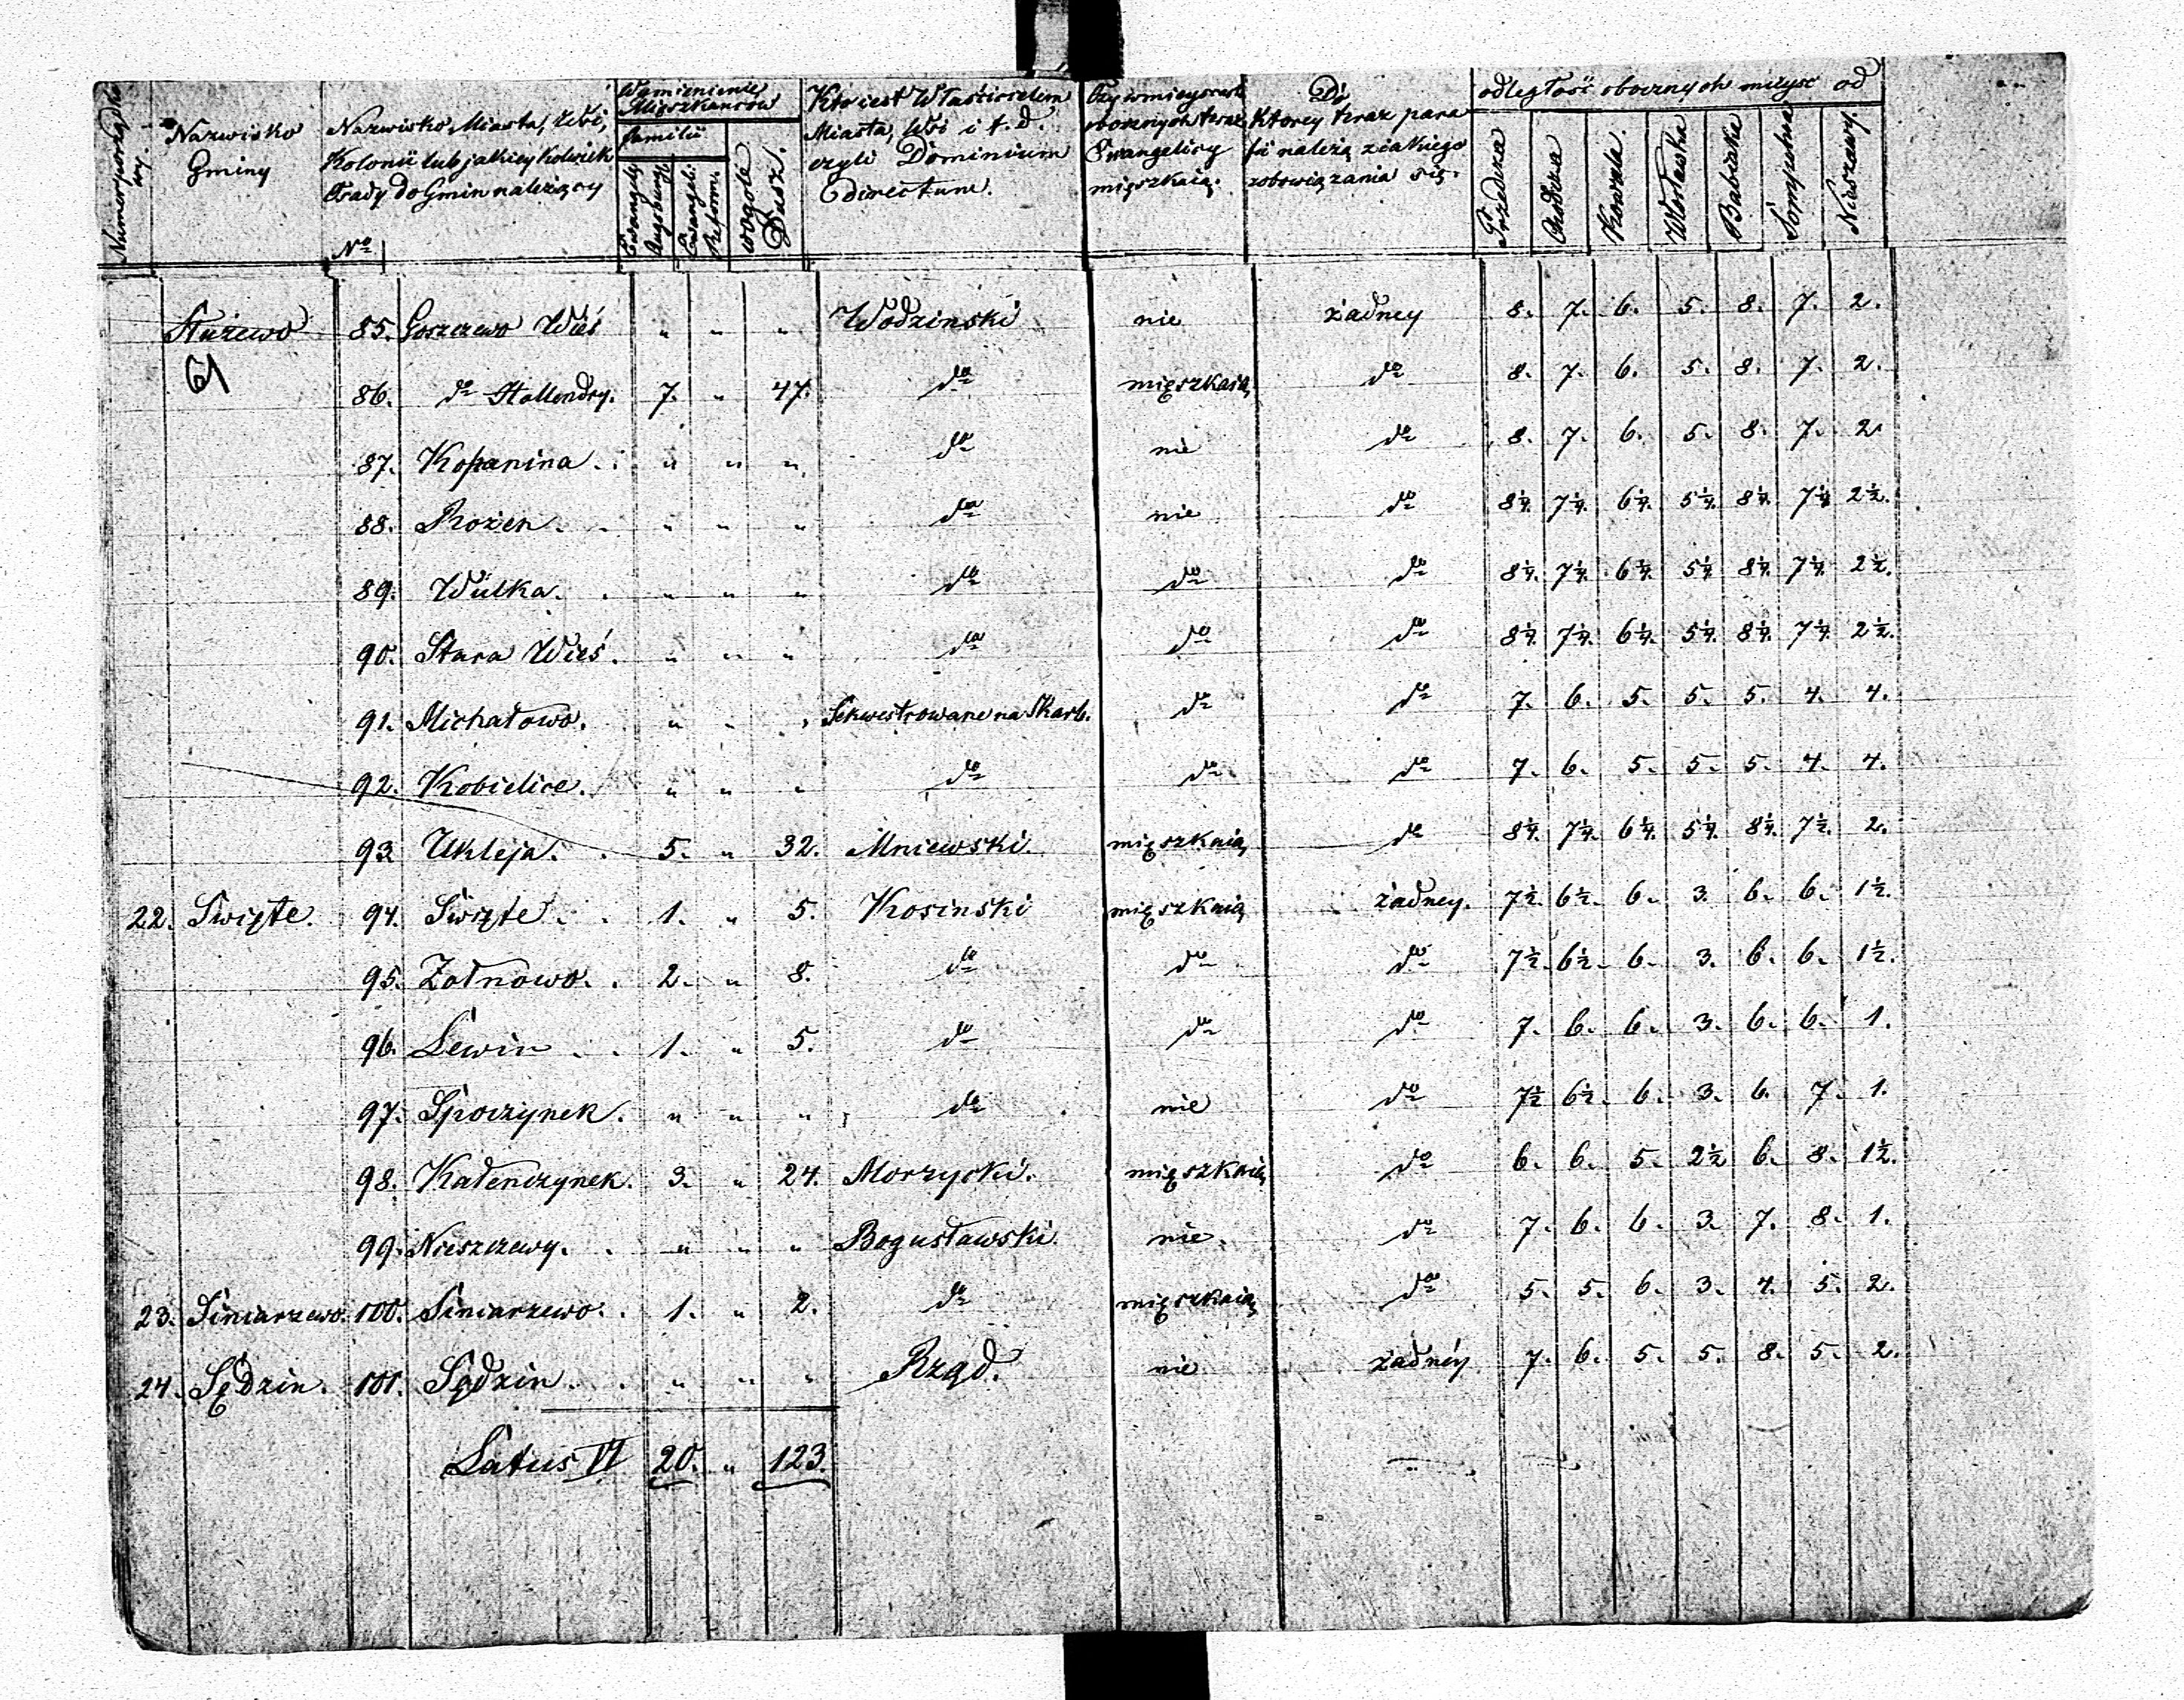 Numer porządko wy.
Nazwisko Gminy
Nazwisko Miasta, Wsi, Kolonii lub jakiey kolwiek Osady do Gmin należący
No
Wymienienie Mięszkańców
familii
Ewangely Augsburg:
Ewangeli: Reform.
wogóle Dusz.
Kto iest Właścicielem Miasta, Wsi i t. d. czyli Dominium directum.
Czy w mieyscach obocznych teraz Ewangelicy mięszkaią.
Do ktorey teraz para fii należą z iakiego zobowiązania się.
odległość obocznych mieysc od
Przedecza
Chodcza
Kowala.
Włocławka
Babiaka
Sompolna
Nieszawy.
Służewo 85. Goszczewo Wieś " " " Wodzinski nie żadney 8. 7. 6. 5. 8. 7. 2.
61
86. do Hollendry. 7. " 47. do mięszkaią do 8. 7. 6. 5. 8. 7. 2.
87. Kopanina. " " " do nie do 8. 7. 6. 5. 8. 7. 2
88. Rożen. " " " do nie do 8¼. 7¼. 6¼. 5¼. 8¼. 7¼ 2½.
89. Wulka. " " " do do do 8¼. 7¼. 6¼. 5¼ 8¼. 7¼ 2½.
90. Stara Wieś. " " " do do do 8¼. 7¼. 6¼. 5¼. 8¼. 7¼. 2½.
91. Michałowo. " " " Sekwestrowane na Skarb. do do 7. 6. 5. 5. 5. 4. 4.
92. Kobielice. " " " do do do 7. 6. 5. 5. 5. 4. 4.
93 Ukleja. 5. " 32. Mniewski. mięszkaią do 8¼. 7¼. 6¼. 5¼. 8¼. 7½. 2.
22. Swięte. 94. Swięte. 1. " 5. Kosinski mięszkaią żadney. 7½. 6½. 6. 3. 6. 6. 1½.
95. Zołnowo. 2. " 8. do do do 7½. 6½. 6. 3. 6. 6. 1½.
96. Lewin 1. " 5. do do do 7. 6. 6. 3. 6. 6. 1.
97. Spoczynek. " " " do nie do 7½ 6½. 6. 3. 6. 7. 1.
98. Kałenczynek. 3. " 24. Morzycki. mięszkaią do 6. 6. 5. 2½ 6. 8. 1½.
99. Nieszczewy. " " " Bogusławski. nie. do 7. 6. 6. 3. 7. 8. 1.
23. Siniarzewo. 100. Siniarzewo. 1. " 2. do mięszkaią do 5. 5. 6. 3. 4. 5. 2.
24. Sędzin. 101. Sędzin " " " Rząd. nie żadnéy 7. 6. 5. 5. 8. 5. 2.
Latus VI 20. " 123.